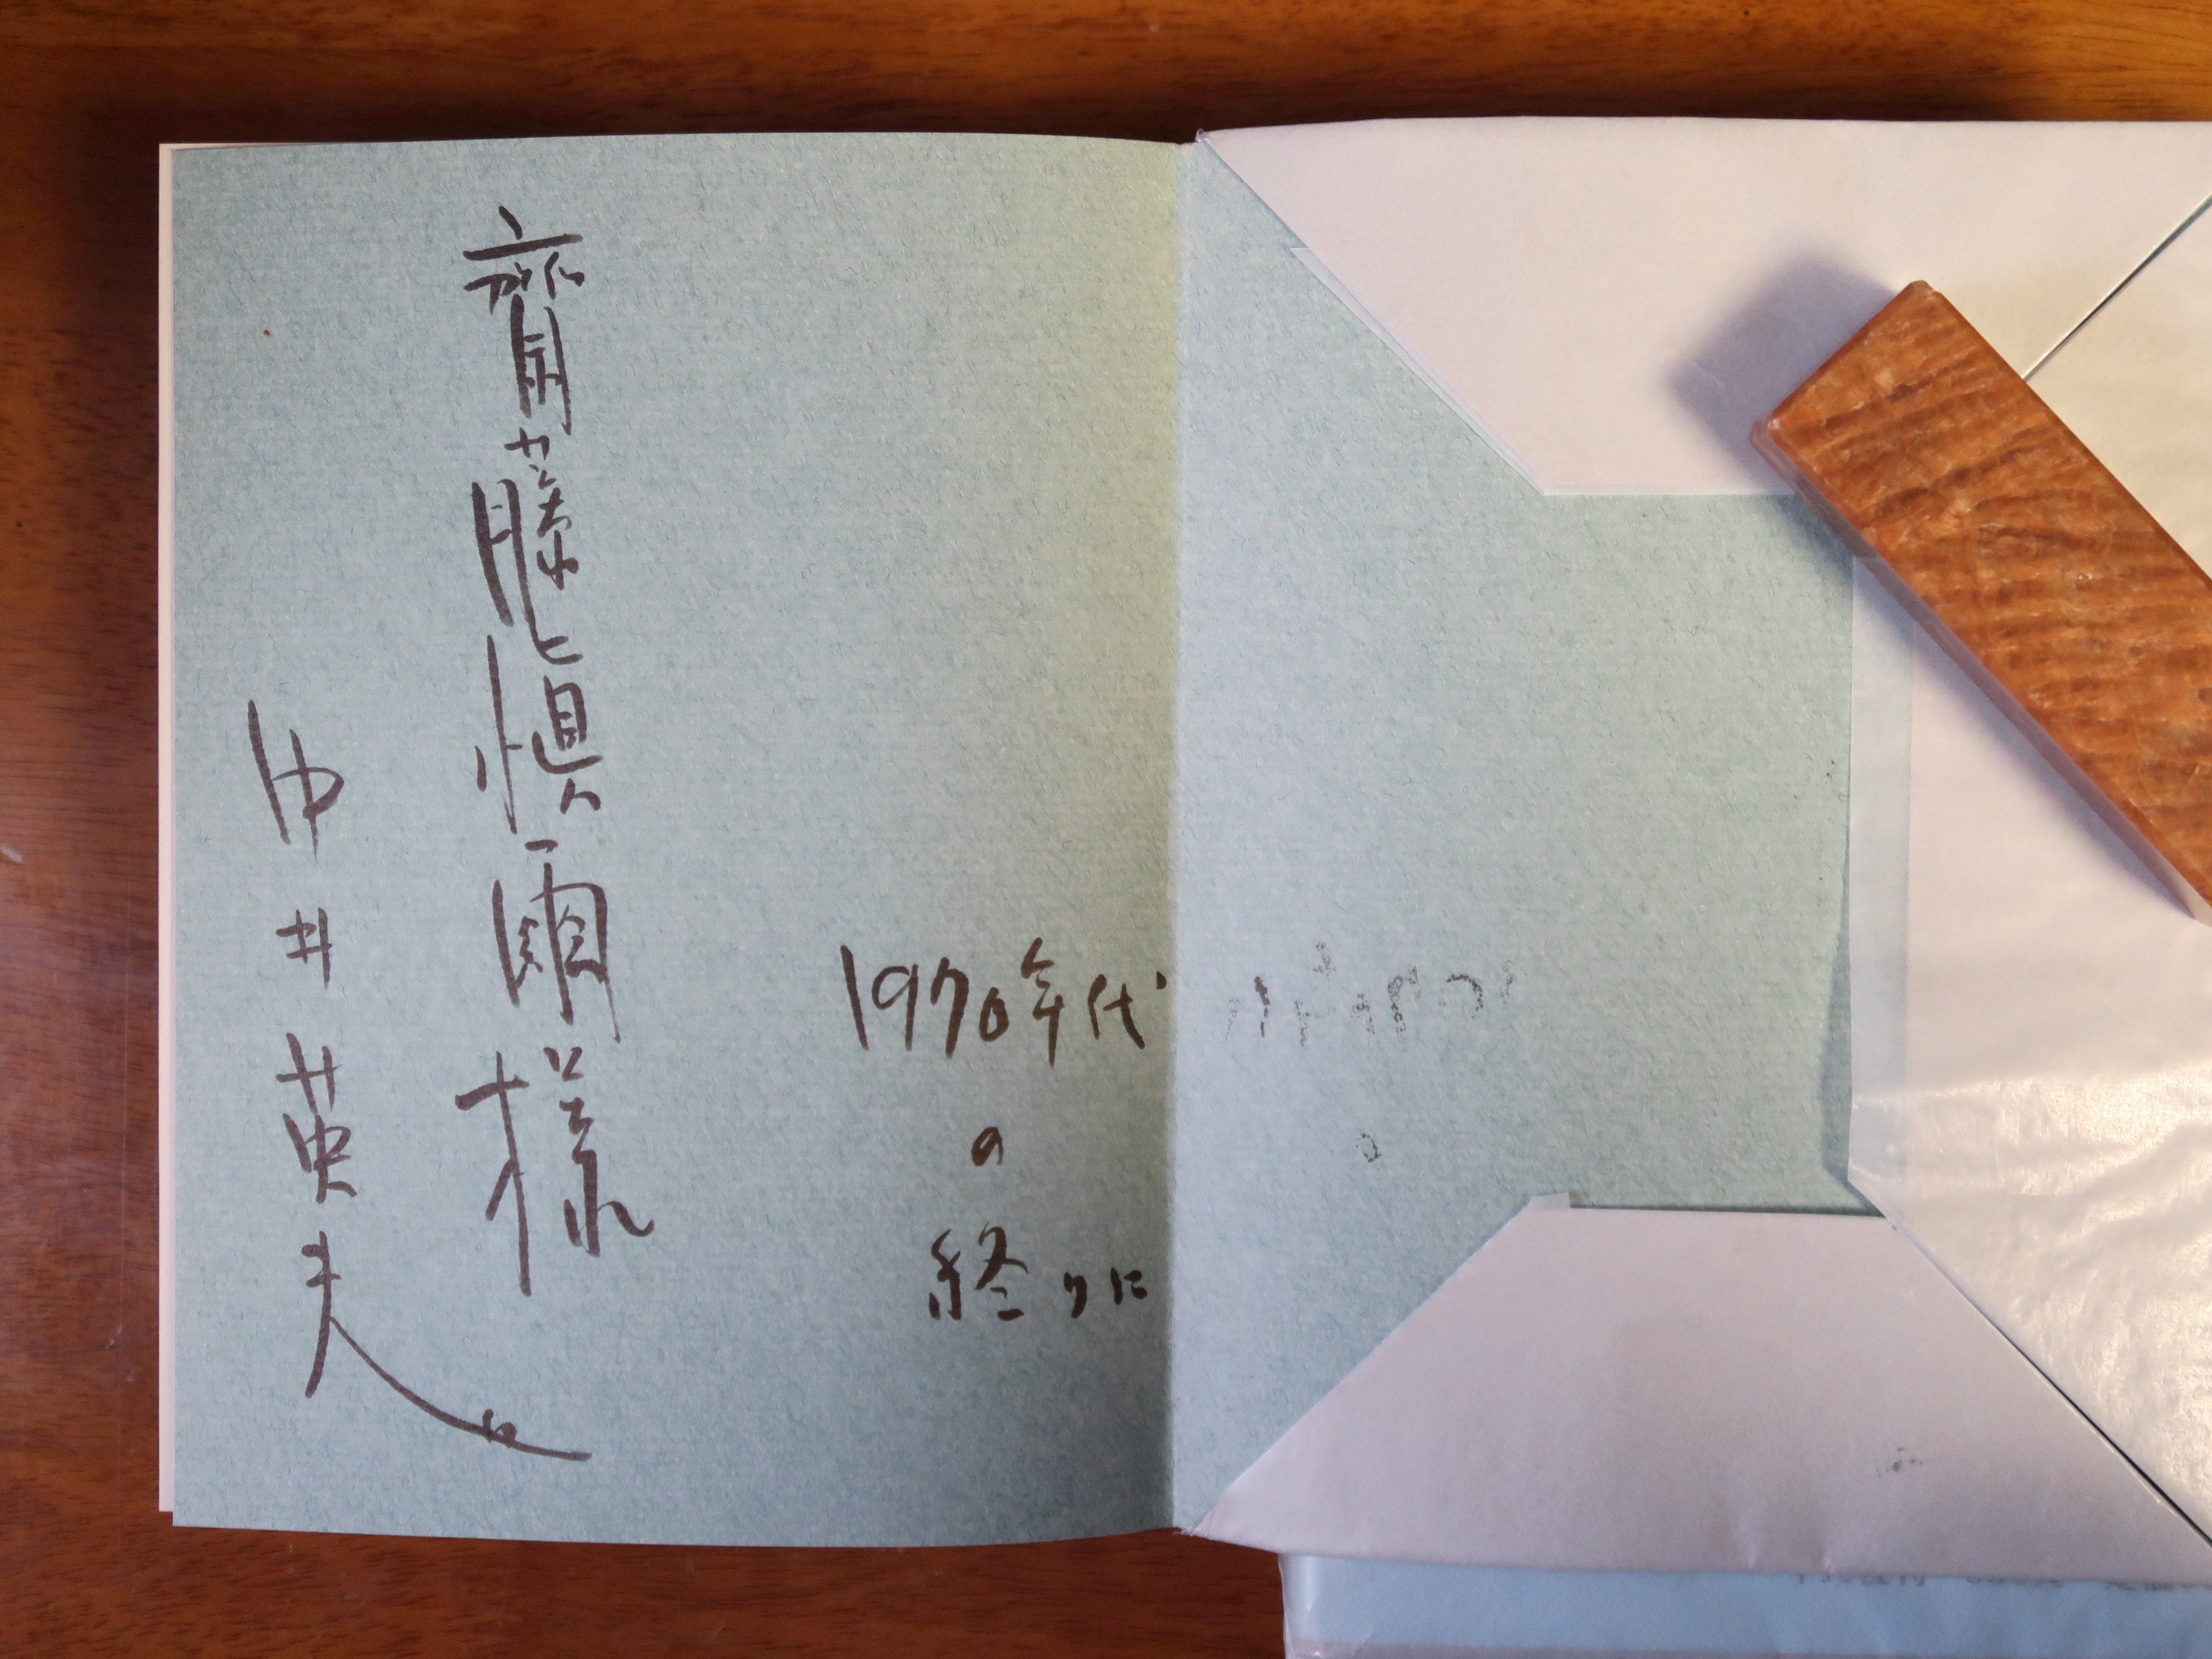 1970年代
の
終りに
齋藤愼爾様
中井英夫